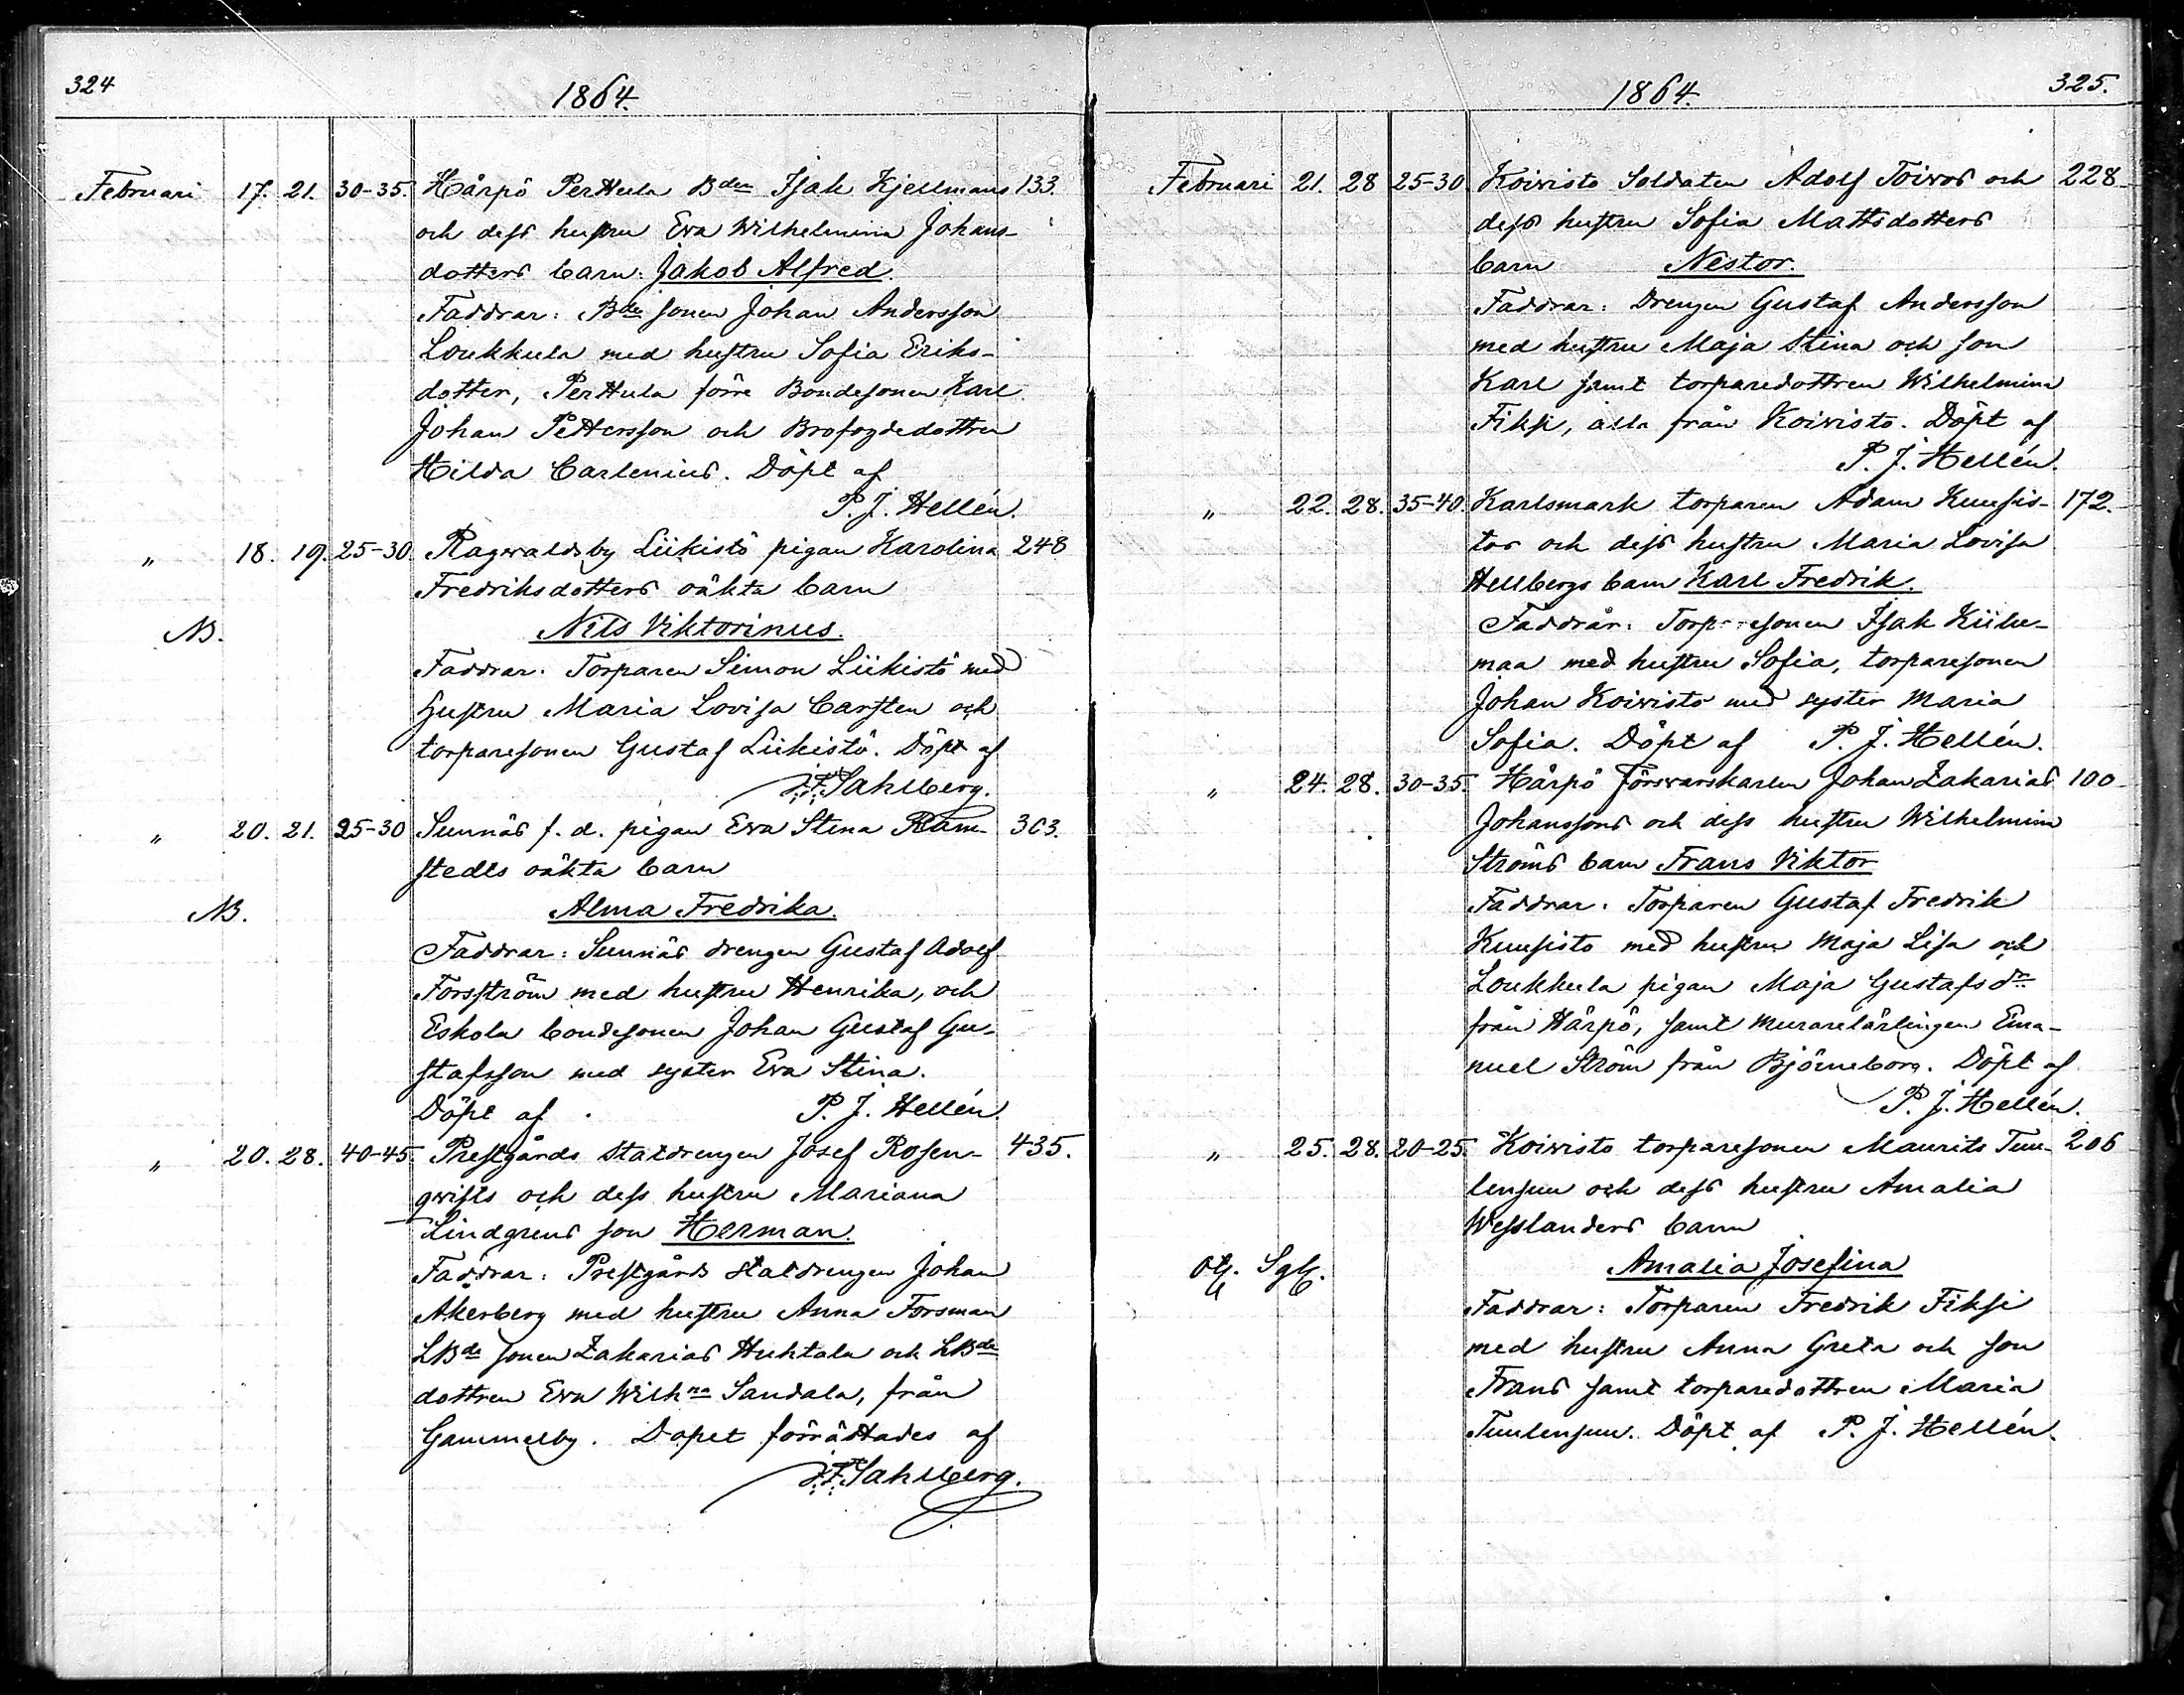 324
1864.
Februari 17. 21. 30-35. Hårpö Perttula Bden Isak Kjellmans 133.
och dess hustru Eva Wilhelmina Johans-
dotters barn: Jakob Alfred.
Faddrar: Bde sonen Johan Andersson
Loukkula med hustru Sofia Eriks-
dotter, Perttula förre Bondesonen Karl
Johan Pettersson och Brofogdedottren
Hilda Carlenius. Döpt af
P. J. Hellén.
" 18. 19. 25-30. Ragwaldsby Liikistö pigan Karolina 248
Fredriksdotters oäkta barn
NB. Nils Viktorinus.
Faddrar: Torparen Simon Liikistö med
hustru Maria Lovisa Carsten och
torparesonen Gustaf Liikistö. Döpt af
F. Sahlberg.
" 20. 21. 25-30 Sunnäs f. d. pigan Eva Stina Ram- 363.
stedts oäkta barn
NB. Alma Fredrika.
Faddrar: Sunnäs drengen Gustaf Adolf
Forsström med hustru Henrika, och
Eskola bondesonen Johan Gustaf Gu-
stafsson med syster Eva Stina.
Döpt af P. J. Hellén.
" 20. 28. 40-45. Prestgårds statdrengen Josef Rosen- 435.
qwists och dess hustru Mariana
Lindgrens son Herman.
Faddrar: Prestgårds statdrengen Johan
Åkerberg med hustru Anna Forsman
LBde sonen Zakarias Huhtala och LBde
dottren Eva Wilhna Sandala, från
Gammelby. Dopet förrättades af
F. Sahlberg.
1864. 325.
Februari 21. 28 25-30 Koivisto Soldaten Adolf Toivos och 228
dess hustru Sofia Mattsdotters
barn Nestor.
Faddrar: Drengen Gustaf Andersson
med hustru Maja Stina och son
Karl samt torparedottren Wilhelmina
Fiksi, alla från Koivisto. Döpt af
P. J. Hellén.
" 22. 28. 35-40. Karlsmark torparen Adam Kuusis- 172.
tos och dess hustru Maria Lovisa
Hellbergs barn Karl Fredrik.
Faddrar: Torparesonen Isak Kiile-
maa med hustru Sofia, torparesonen
Johan Koivisto med syster Maria
Sofia. Döpt af P. J. Hellén.
" 24. 28. 30-35. Hårpö Försvarskarlen Johan Zakarias 100
Johanssons och dess hustru Wilhelmina
Ströms barn Frans Viktor
Faddrar: Torparen Gustaf Fredrik
Kuusisto med hustru Maja Lisa och
Loukkula pigan Maja Gustafsdr
från Hårpö, samt murarelärlingen Ema-
nuel Ström från Björneborg. Döpt af
P. J. Hellén.
" 25. 28. 20-25. Koivisto torparesonen Maurits Tuu- 206
lensuu och dess hustru Amalia
Wesslanders barn
Amalia Josefina
Faddrar: Torparen Fredrik Fiksi
med hustru Anna Greta och son
Frans samt torparedottren Maria
Tuulensuu. Döpt af P. J. Hellén.